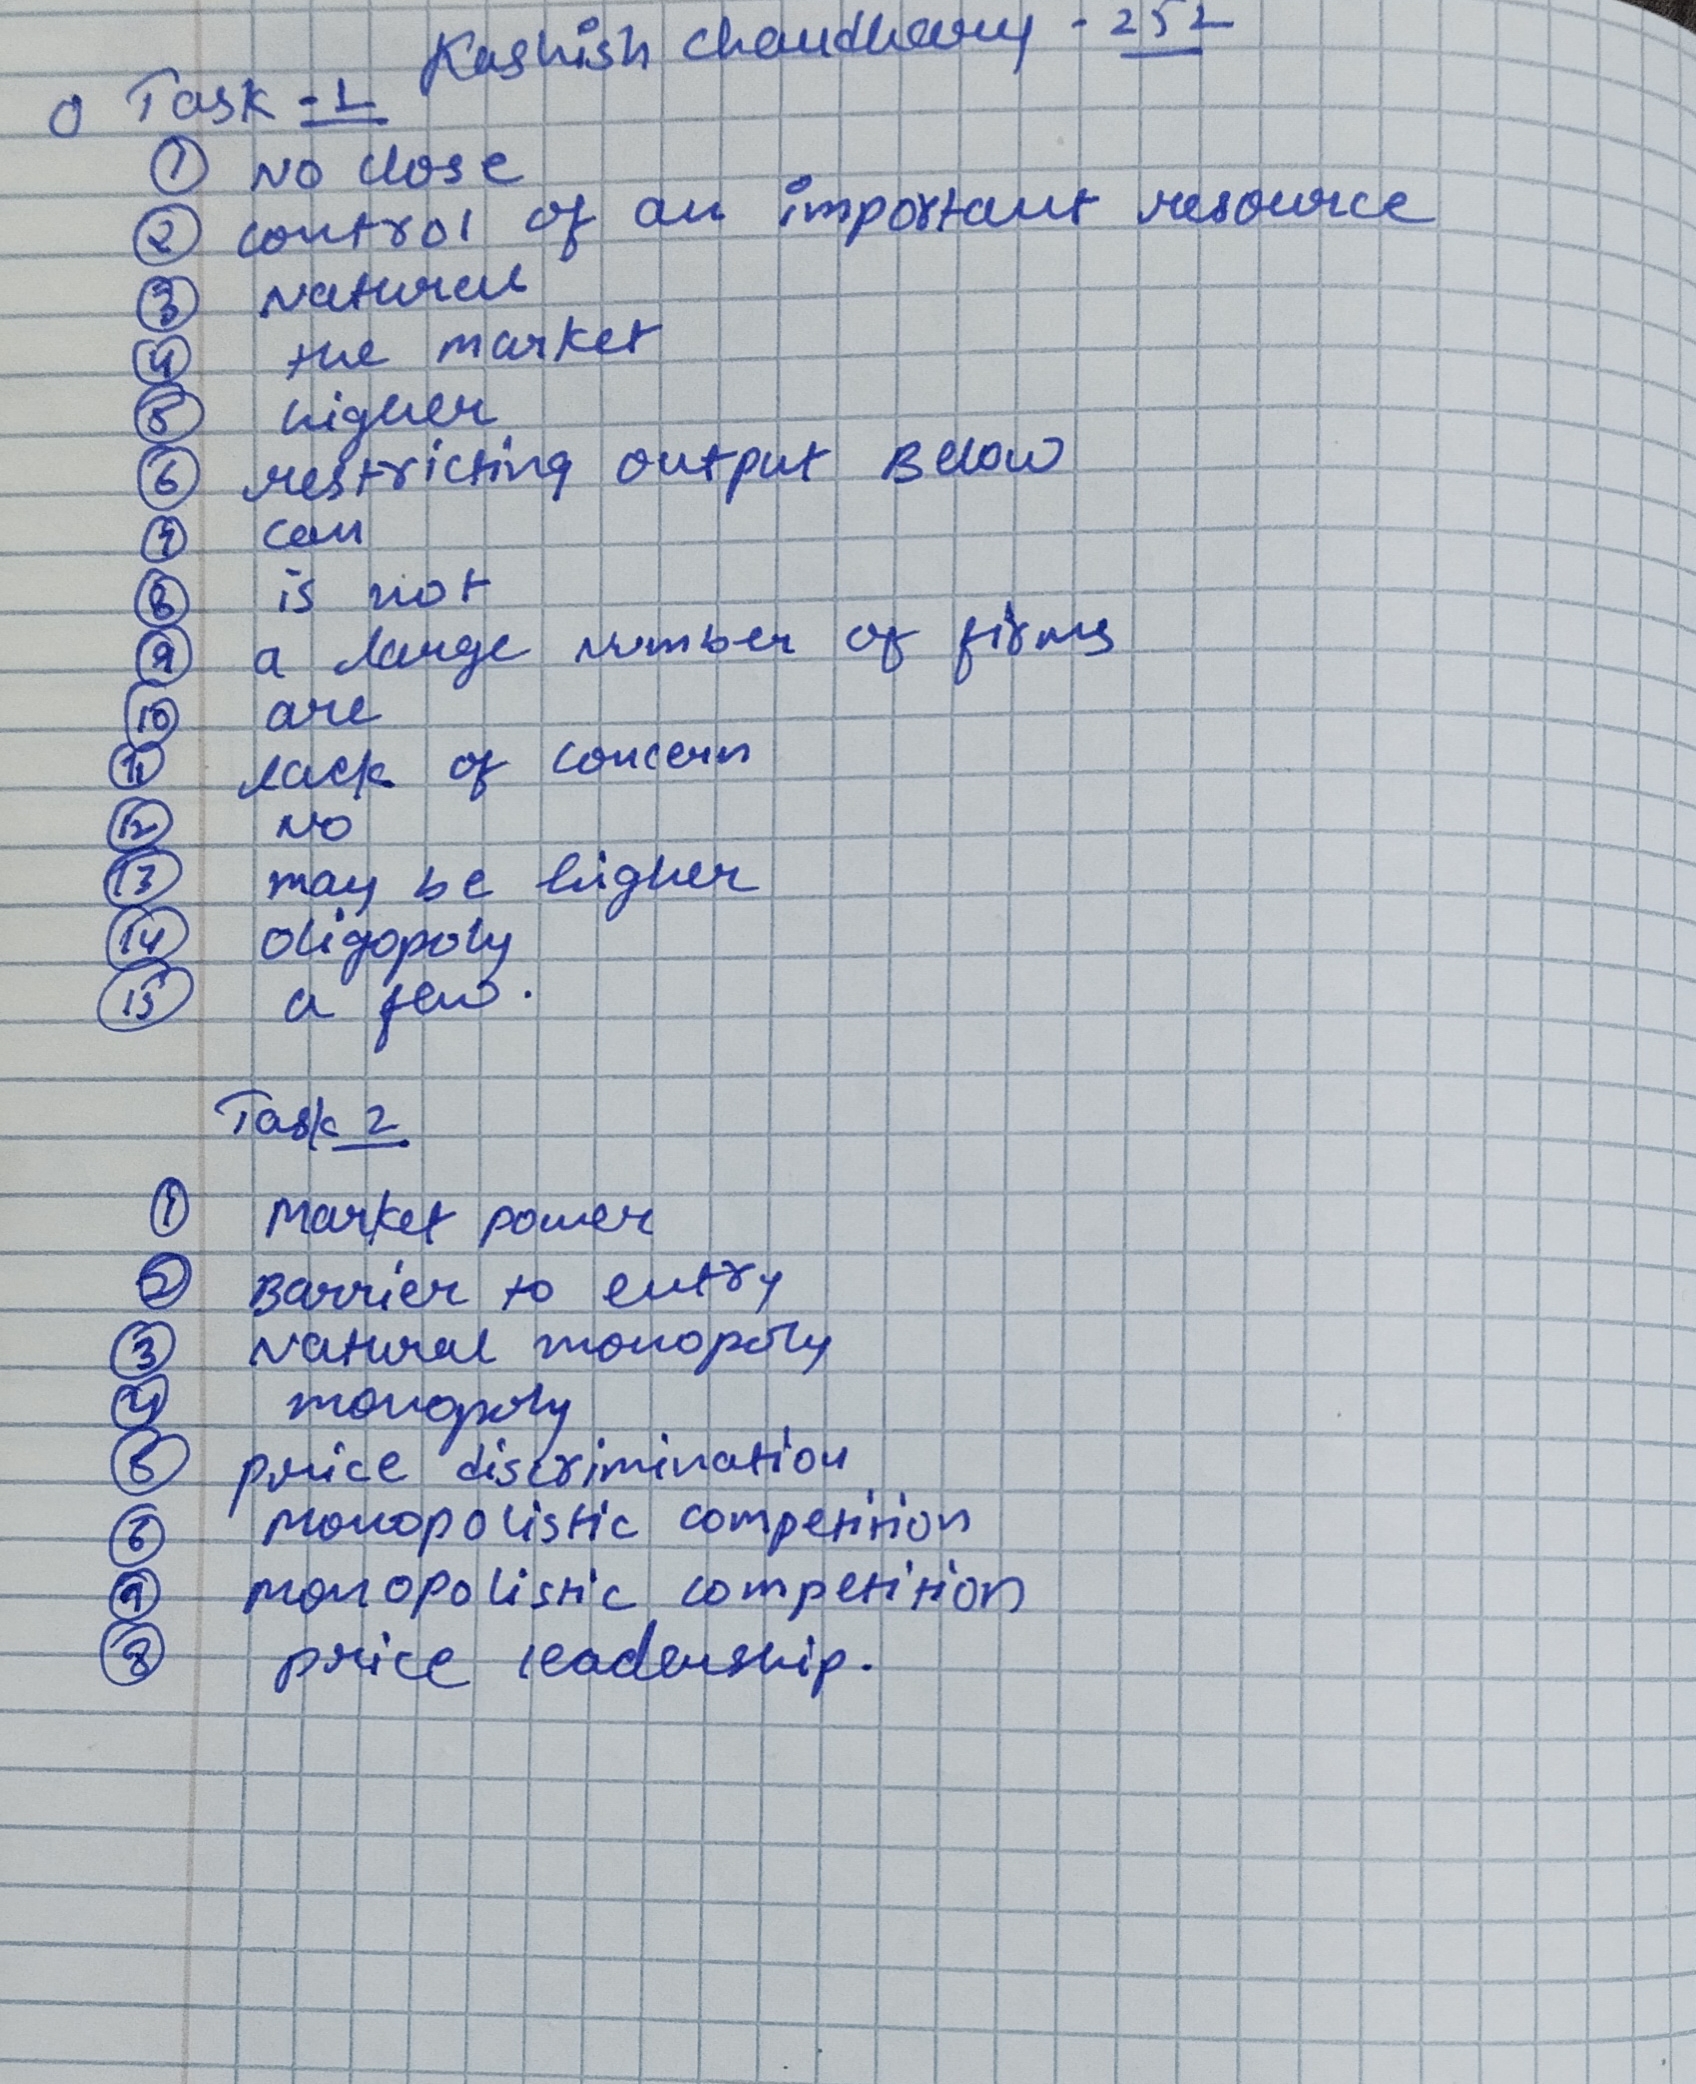 Kashish chaudhary - 252
Task - 1
① No close
② control of an important resource
③ Natural
④ the market
⑤ higher
⑥ restricting output Below
⑦ can
⑧ is not
⑨ a large number of firms
⑩ are
⑪ lack of concern
⑫ No
⑬ may be higher
⑭ oligopoly
⑮ a few.
Task 2
① Market power
② Barrier to entry
③ Natural monopoly
④ monopoly
⑤ price discrimination
⑥ Monopolistic competition
⑦ monopolistic competition
⑧ price leadership.